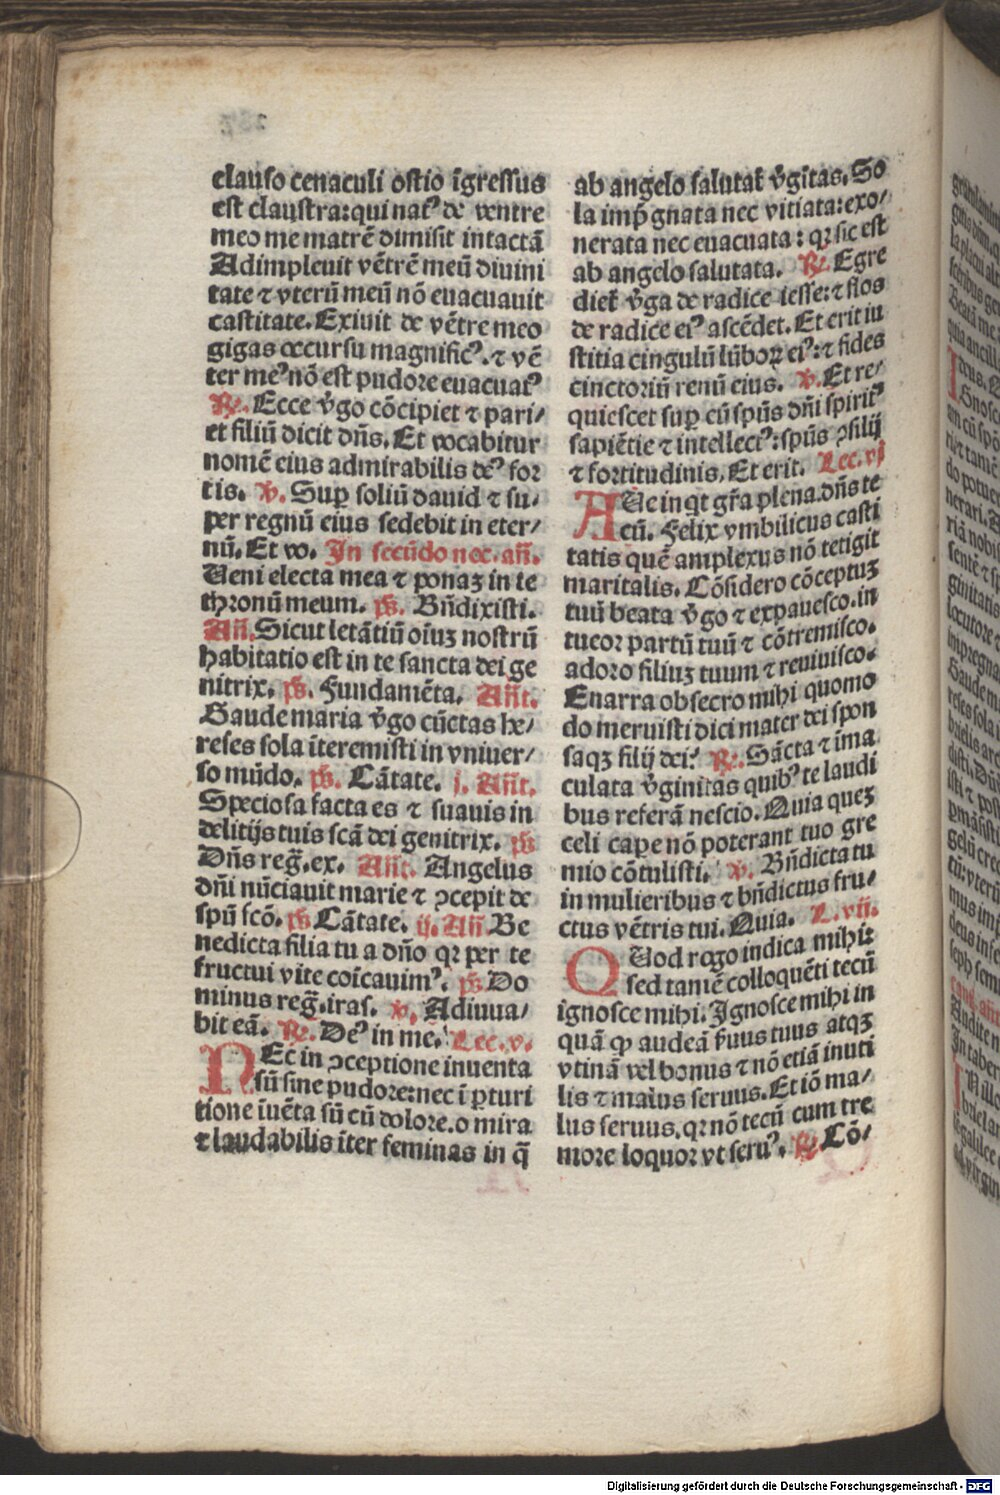 clauso cenaculi ostio īgressus
est claustra: qui natꝰ de ventre
meo me matrē dimisit intactā
Adimpleuit vētrē meū diuini
tate ⁊ vterū meū nō euacuauit
castitate. Exiuit de vētre meo
gigas occursu magnificꝰ. ⁊ vē
ter meꝰ nō est pudore euacuatꝰ
℟. Ecce v̄go cōcipiet ⁊ pari/
et filiū dicit dn̄s. Et vocabitur
nomē eius admirabilis deꝰ for
tis. ℣. Sup̄ soliū dauid ⁊ su/
per regnū eius sedebit in eter/
nū. Et vo. In secūdo noc. an̄.
Ueni electa mea ⁊ ponaꝫ in te
thronū meum. ps̄. Bn̄dixisti.
An̄. Sicut letātiū oīuꝫ nostrū
habitatio est in te sancta dei ge
nitrix. ps̄. Fundamēta. An̄t.
Gaude maria v̄go cūctas he/
reses sola īteremisti in vniuer/
so mūdo. ps̄. Cātate. j. An̄t.
Speciosa facta es ⁊ suauis in
delitijs tuis scā dei genitrix. ps̄
Dn̄s reḡ. ex. An̄t. Angelus
dn̄i nūciauit marie ⁊ ꝯcepit de
spū scō. ps̄ Cātate. ij. An̄. Be
nedicta filia tu a dn̄o qꝛ per te
fructui vite coīcauimꝰ. ps̄ Do
minus reḡ. iras. ℣. Adiuua/
bit eā. ℟. Deꝰ in me. Lec. v.
NEc in ꝯceptione inuenta
sū sine pudore: nec ī ꝑturi
tione īuēta sū cū dolore. o mira
⁊ laudabilis īter feminas in q̄
ab angelo salutat̄ v̄gītas. So
la imp̄gnata nec vitiata: exo/
nerata nec euacuata: qꝛ sic est
ab angelo salutata. ℟. Egre
diet̄ v̄ga de radice iesse: ⁊ flos
de radice eiꝰ ascēdet. Et erit iu
stitia cingulū lūboꝝ eiꝰ: ⁊ fides
cinctoriū renū eius. ℣. Et re/
quiescet sup̄ eū spūs dn̄i spiritꝰ
sapiētie ⁊ intellectꝰ: spūs ꝯsilij
⁊ fortitudinis. Et erit. Lec. vj
AUe inqt gr̄a plena. dn̄s te
cū. Felix vmbilicus casti
tatis quē amplexus nō tetigit
maritalis. Cōsidero cōceptuꝫ
tuū beata v̄go ⁊ expauesco. in
tueor partū tuū ⁊ cōtremisco.
adoro filiuꝫ tuum ⁊ reuiuisco.
Enarra obsecro mihi quomo
do meruisti dici mater dei spon
saqꝫ filij dei? ℟. Sācta ⁊ īma
culata v̄ginitas quibꝰ te laudi
bus referā nescio. Quia queꝫ
celi cape nō poterant tuo gre
mio cōtulisti. ℣. Bn̄dicta tu
in mulieribus ⁊ bn̄dictus fru/
ctus vētris tui. Quia. L. vij.
QUod rogo indica mihi:
sed tamē colloquēti tecū
ignosce mihi. Ignosce mihi in
quā ꝙ audeā p̄uus tuus atqꝫ
vtinā vel bonus ⁊ nō etiā inuti
lis ⁊ malus seruus. Et iō ma/
lus seruus. qꝛ nō tecū cum tre
more loquor vt seruꝰ. ℟. Cō/
Digitalisierung gefördert durch die Deutsche Forschungsgemeinschaft - DFG